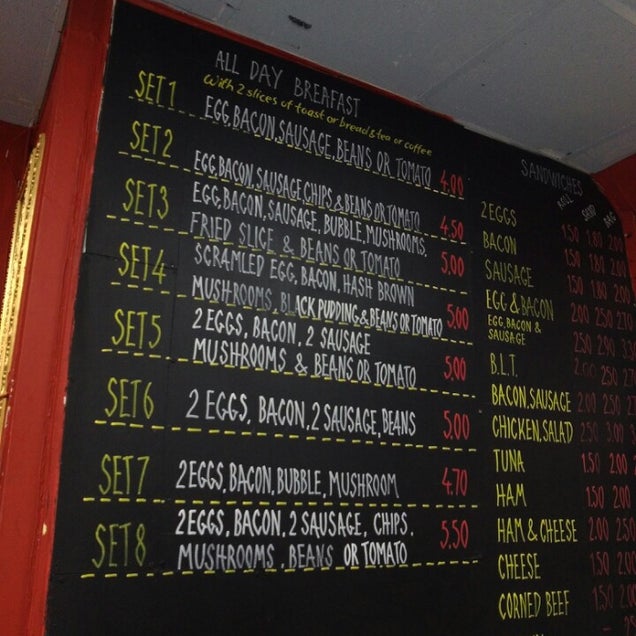 ALL DAY BREAFAST
With 2 slices of toast or bread & tea or coffee
SET 1 EGG, BACON, SAUSAGE, BEANS OR TOMATO 4.00
SET 2 EGG, BACON, SAUSAGE, CHIPS & BEANS OR TOMATO 4.50
SET 3 EGG, BACON, SAUSAGE, BUBBLE, MUSHROOMS,
FRIED SLICE & BEANS OR TOMATO 5.00
SET 4 SCRAMLED EGG, BACON, HASH BROWN
MUSHROOMS, BLACK PUDDING & BEANS OR TOMATO 5.00
SET 5 2 EGGS, BACON, 2 SAUSAGE
MUSHROOMS & BEANS OR TOMATO 5.00
SET 6 2 EGGS, BACON, 2 SAUSAGE, BEANS 5.00
SET 7 2 EGGS, BACON, BUBBLE, MUSHROOM 4.70
SET 8 2 EGGS, BACON, 2 SAUSAGE, CHIPS,
MUSHROOMS, BEANS OR TOMATO 5.50
SANDWICHES
2 EGGS 1.50 1.80 2.00
BACON 1.50 1.80 2.00
SAUSAGE 1.50 1.80 2.00
EGG & BACON 2.00 2.50
EGG, BACON &
SAUSAGE 2.50 2.90
B.L.T. 2.00 2.50
BACON, SAUSAGE 2.00 2.50
CHICKEN, SALAD 2.50 3.00
TUNA 1.50 2.00
HAM 1.50 2.00
HAM & CHEESE 2.00 2.50
CHEESE 1.50 2.00
CORNED BEEF 1.50